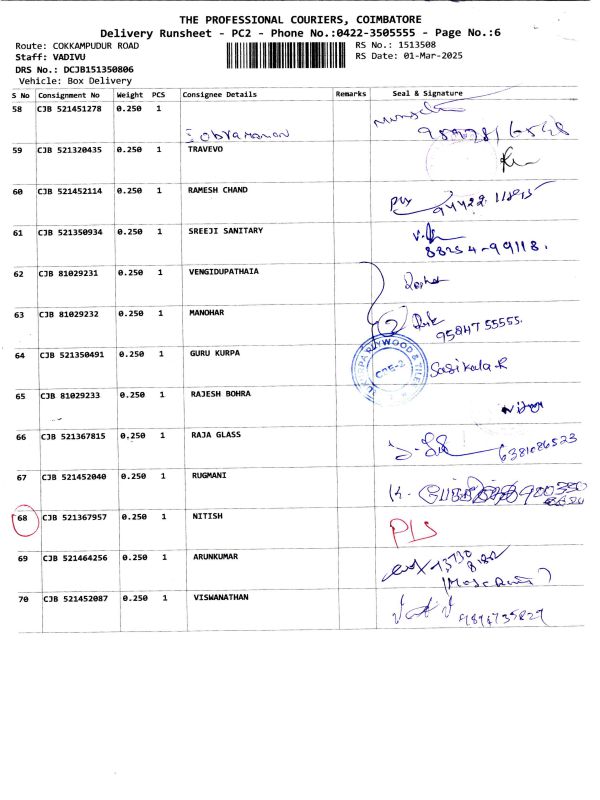 THE PROFESSIONAL COURIERS, COIMBATORE
Delivery Runsheet - PC2 - Phone No.:0422-3505555 - Page No.:6
Route: COKKAMPUDUR ROAD RS No.: 1513508
Staff: VADIVU RS Date: 01-Mar-2025
DRS No.: DCJB151350806
Vehicle: Box Delivery
S No Consignment No Weight PCS Consignee Details Remarks Seal & Signature
58 CJB 521451278 0.250 1
59 CJB 521320435 0.250 1 TRAVEVO
60 CJB 521452114 0.250 1 RAMESH CHAND
61 CJB 521350934 0.250 1 SREEJI SANITARY
88254-99118.
62 CJB 81029231 0.250 1 VENGIDUPATHAIA
63 CJB 81029232 0.250 1 MANOHAR
95847 55555.
64 CJB 521350491 0.250 1 GURU KURPA Sasikala.R
65 CJB 81029233 0.250 1 RAJESH BOHRA
66 CJB 521367815 0.250 1 RAJA GLASS 6381086523
67 CJB 521452040 0.250 1 RUGMANI
68 CJB 521367957 0.250 1 NITISH PLS
69 CJB 521464256 0.250 1 ARUNKUMAR
70 CJB 521452087 0.250 1 VISWANATHAN